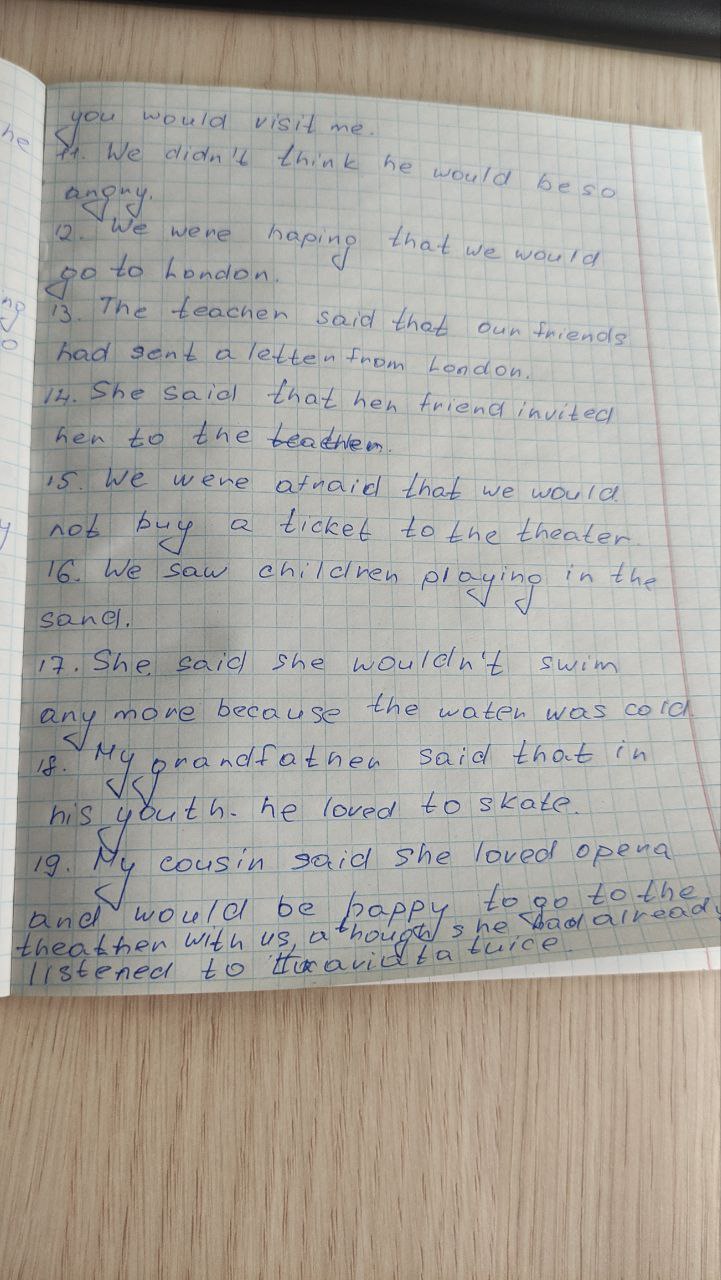 he
you would visit me.
11. We didn't think he would be so
angry.
12. We were haping that we would
ng
go to London.
13. The teacher said that our friends
o
had sent a letter from London.
14. She said that her friend invited
her to the teather.
15. We were afraid that we would
y
not buy a ticket to the theater.
16. We saw children playing in the
sand.
17. She said she wouldn't swim
any more because the water was cold
18. My grandfather said that in
his youth. he loved to skate.
19. My cousin said she loved opera
and would be happy to go to the
theather with us, athough she had already
listened to tuice